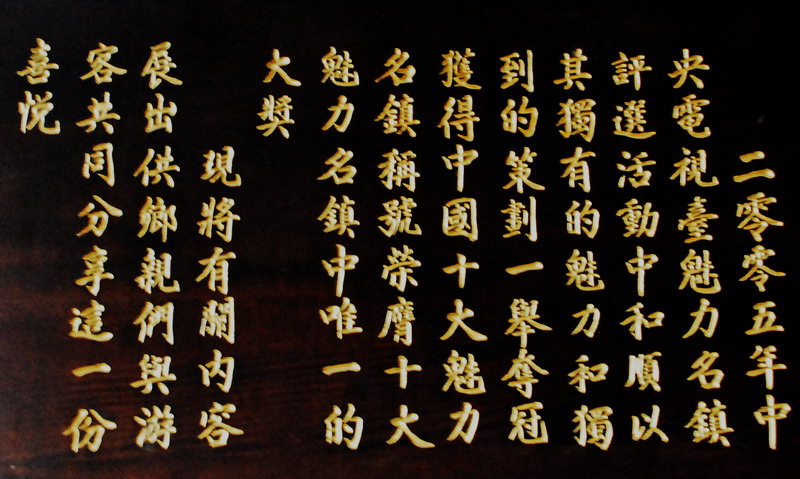 二零零五年中
央電視臺魅力名鎮
評選活動中和順以
其獨有的魅力和獨
到的策劃一舉奪冠
獲得中國十大魅力
名鎮稱號榮膺十大
魅力名鎮中唯一的
大獎
現將有關内容
展出供鄉親們與游
客共同分享這一份
喜悅